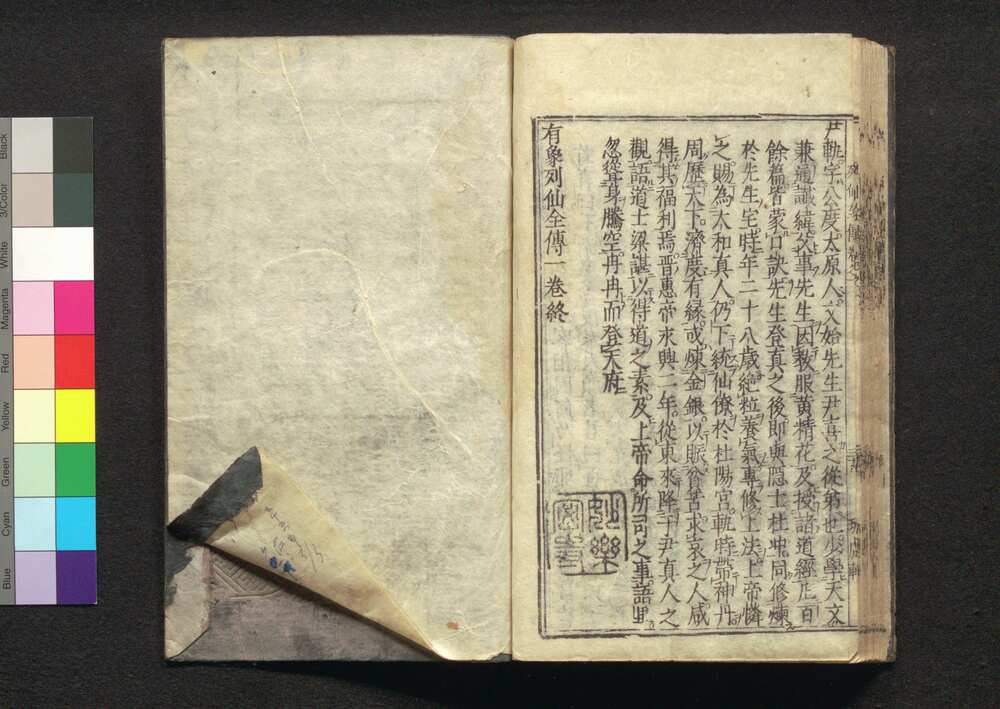 尹軌字公度太原人文始先生尹喜之從弟也少學天文
兼通讖緯父事先生因教服黄精花及授諸道經凡百
餘篇皆蒙口訣先生登真之後即與隠士杜冲同修煉
於先生宅時年二十八歳絶粒養氣專修上法上帝憐
之賜為太和真人仍下統仙僚於杜陽宮軌時帶神丹
周歴天下濟度有縁或煉金銀以賑貧苦求哀之人咸
得其福利焉晋惠帝永興二年從東來降于尹真人之
觀語道士梁諶以得道之素及上帝命所司之事語畢
忽從身騰空冉冉而登天府
有象列仙全傳一卷終
Black
3/Color
White
Magenta
Red
Yellow
Green
Cyan
Blue